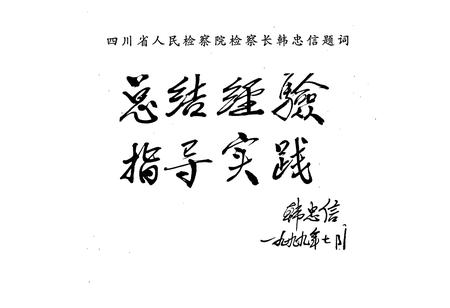 四川省人民检察院检察长韩忠信题词
总结经驗
指导实践
韩忠信
一九九九年七月